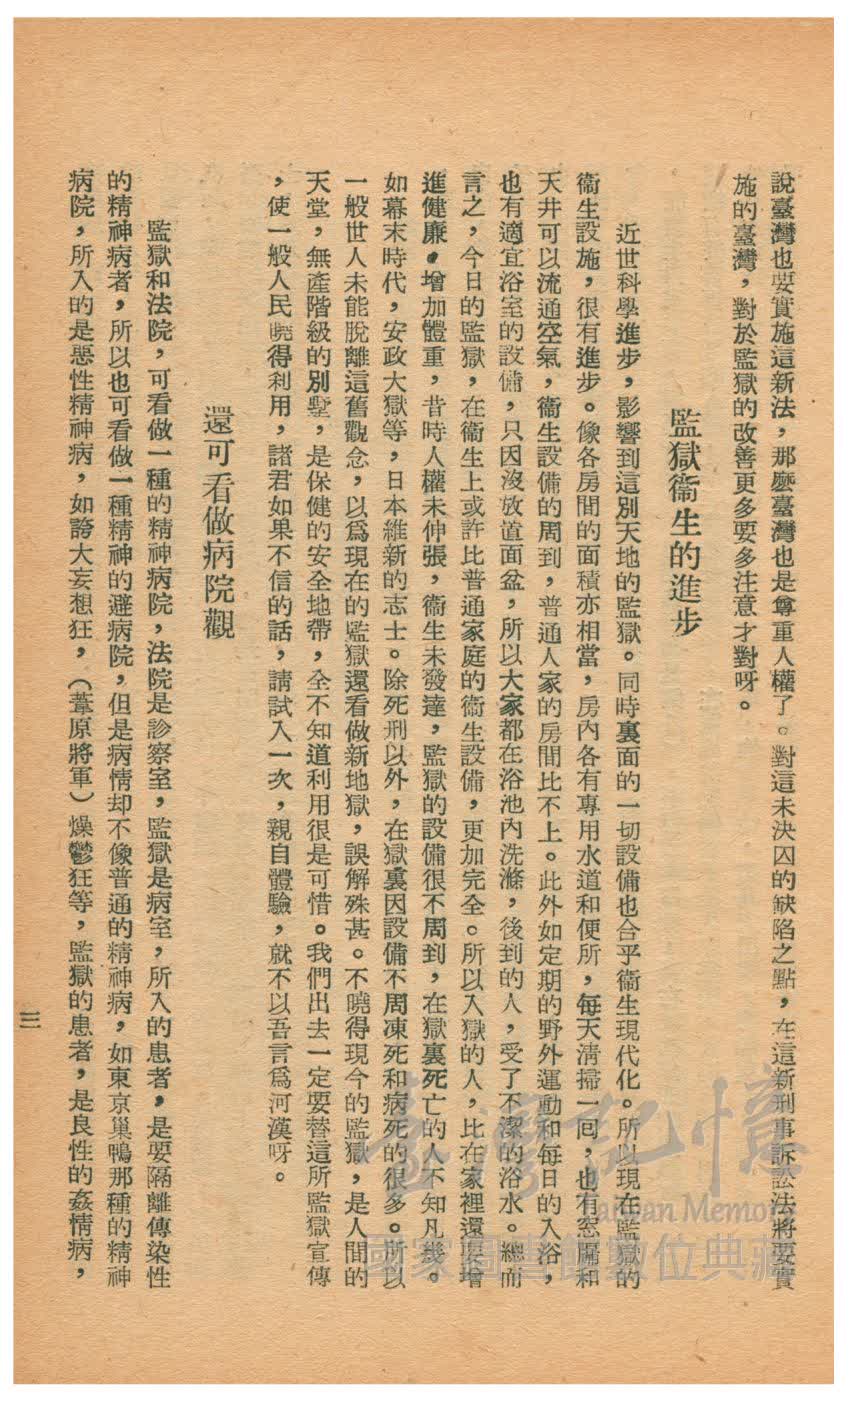 說臺灣也要實施這新法，那麼臺灣也是尊重人權了。對這未決囚的缺陷之點，在這新刑事訴訟法將要實
施的臺灣，對於監獄的改善更多要多注意才對呀。
監獄衞生的進步
近世科學進步，影響到這別天地的監獄。同時裏面的一切設備也合乎衞生現代化。所以現在監獄的
衞生設施，很有進步。像各房間的面積亦相當，房內各有專用水道和便所，每天清掃一回，也有窓牖和
天井可以流通空氣，衞生設備的周到，普通人家的房間比不上。此外如定期的野外運動和每日的入浴，
也有適宜浴室的設備，只因沒放置面盆，所以大家都在浴池內洗滌，後到的人，受了不潔的浴水。總而
言之，今日的監獄，在衞生上或許比普通家庭的衞生設備，更加完全。所以入獄的人，比在家裡還要增
進健廉。增加體重，昔時人權未伸張，衞生未發達，監獄的設備很不周到，在獄裏死亡的人不知凡幾。
如幕末時代，安政大獄等，日本維新的志士。除死刑以外，在獄裏因設備不周凍死和病死的很多。所以
一般世人未能脫離這舊觀念，以爲現在的監獄還看做新地獄，誤解殊甚。不曉得現今的監獄，是人間的
天堂，無產階級的別墅，是保健的安全地帶，全不知道利用很是可惜。我們出去一定要替這所監獄宣傳
，使一般人民曉得利用，諸君如果不信的話，請試入一次，親自體驗，就不以吾言爲河漢呀。
還可看做病院觀
監獄和法院，可看做一種的精神病院，法院是診察室，監獄是病室，所入的患者，是要隔離傳染性
的精神病者，所以也可看做一種精神的避病院，但是病情却不像普通的精神病，如東京巢鴨那種的精神
病院，所入的是惡性精神病，如誇大妄想狂，（葦原將軍）燥鬱狂等，監獄的患者，是良性的姦情病，
三
臺灣記憶
Taiwan Memory
國家圖書館數位典藏